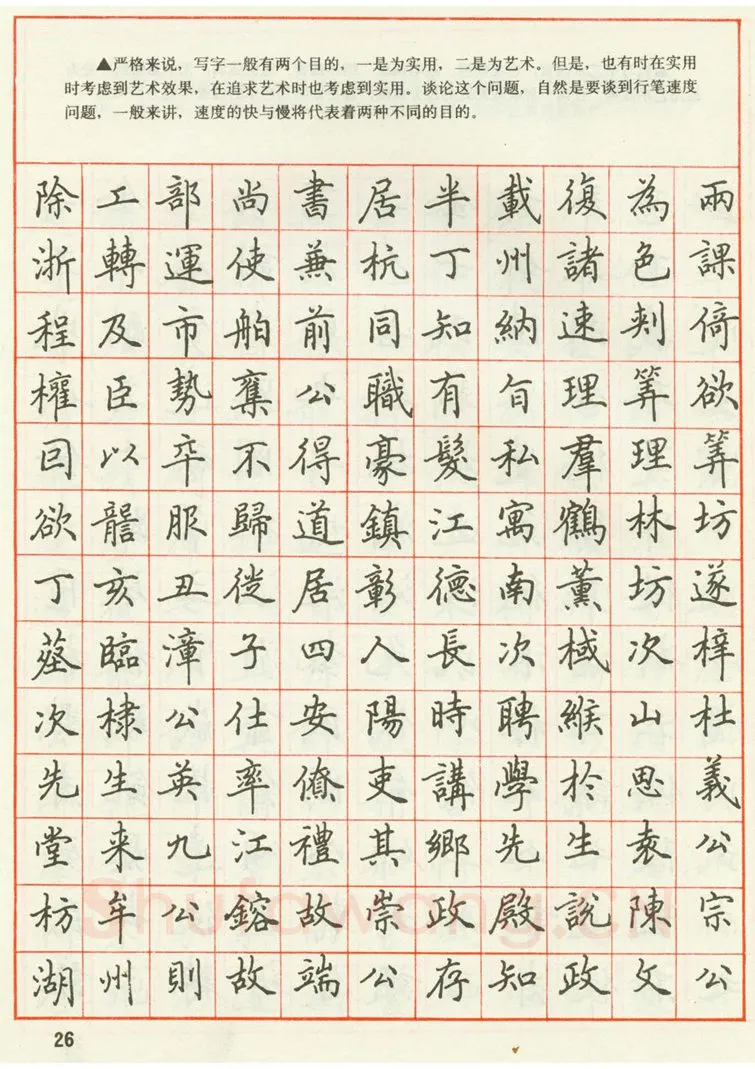 ▲严格来说，写字一般有两个目的，一是为实用，二是为艺术。但是，也有时在实用
时考虑到艺术效果，在追求艺术时也考虑到实用。谈论这个问题，自然是要谈到行笔速度
问题，一般来讲，速度的快与慢将代表着两种不同的目的。
除工部尚書居半載復為兩
浙轉運使兼杭丁州諸色課
程及市舶前同知納速剌倚
權臣勢奪公職有旨理筭欲
回以卒不得豪髮私羣理筭
欲讋服歸道鎮江寓鶴林坊
丁亥丑徙居彰德南薰坊遂
墓臨漳子四人長次棫次梓
次棣公仕安陽時聘緱山杜
先生英率僚吏講學於思義
堂来九江禮其鄉先生袁公
枋牟公鎔故崇政殿說陳宗
湖州則故端公存知政文公
Shufawang.cn
26